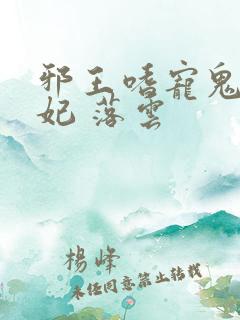 邪王嗜寵鬼
妃 落雲
楊峰
未經同意禁止轉載